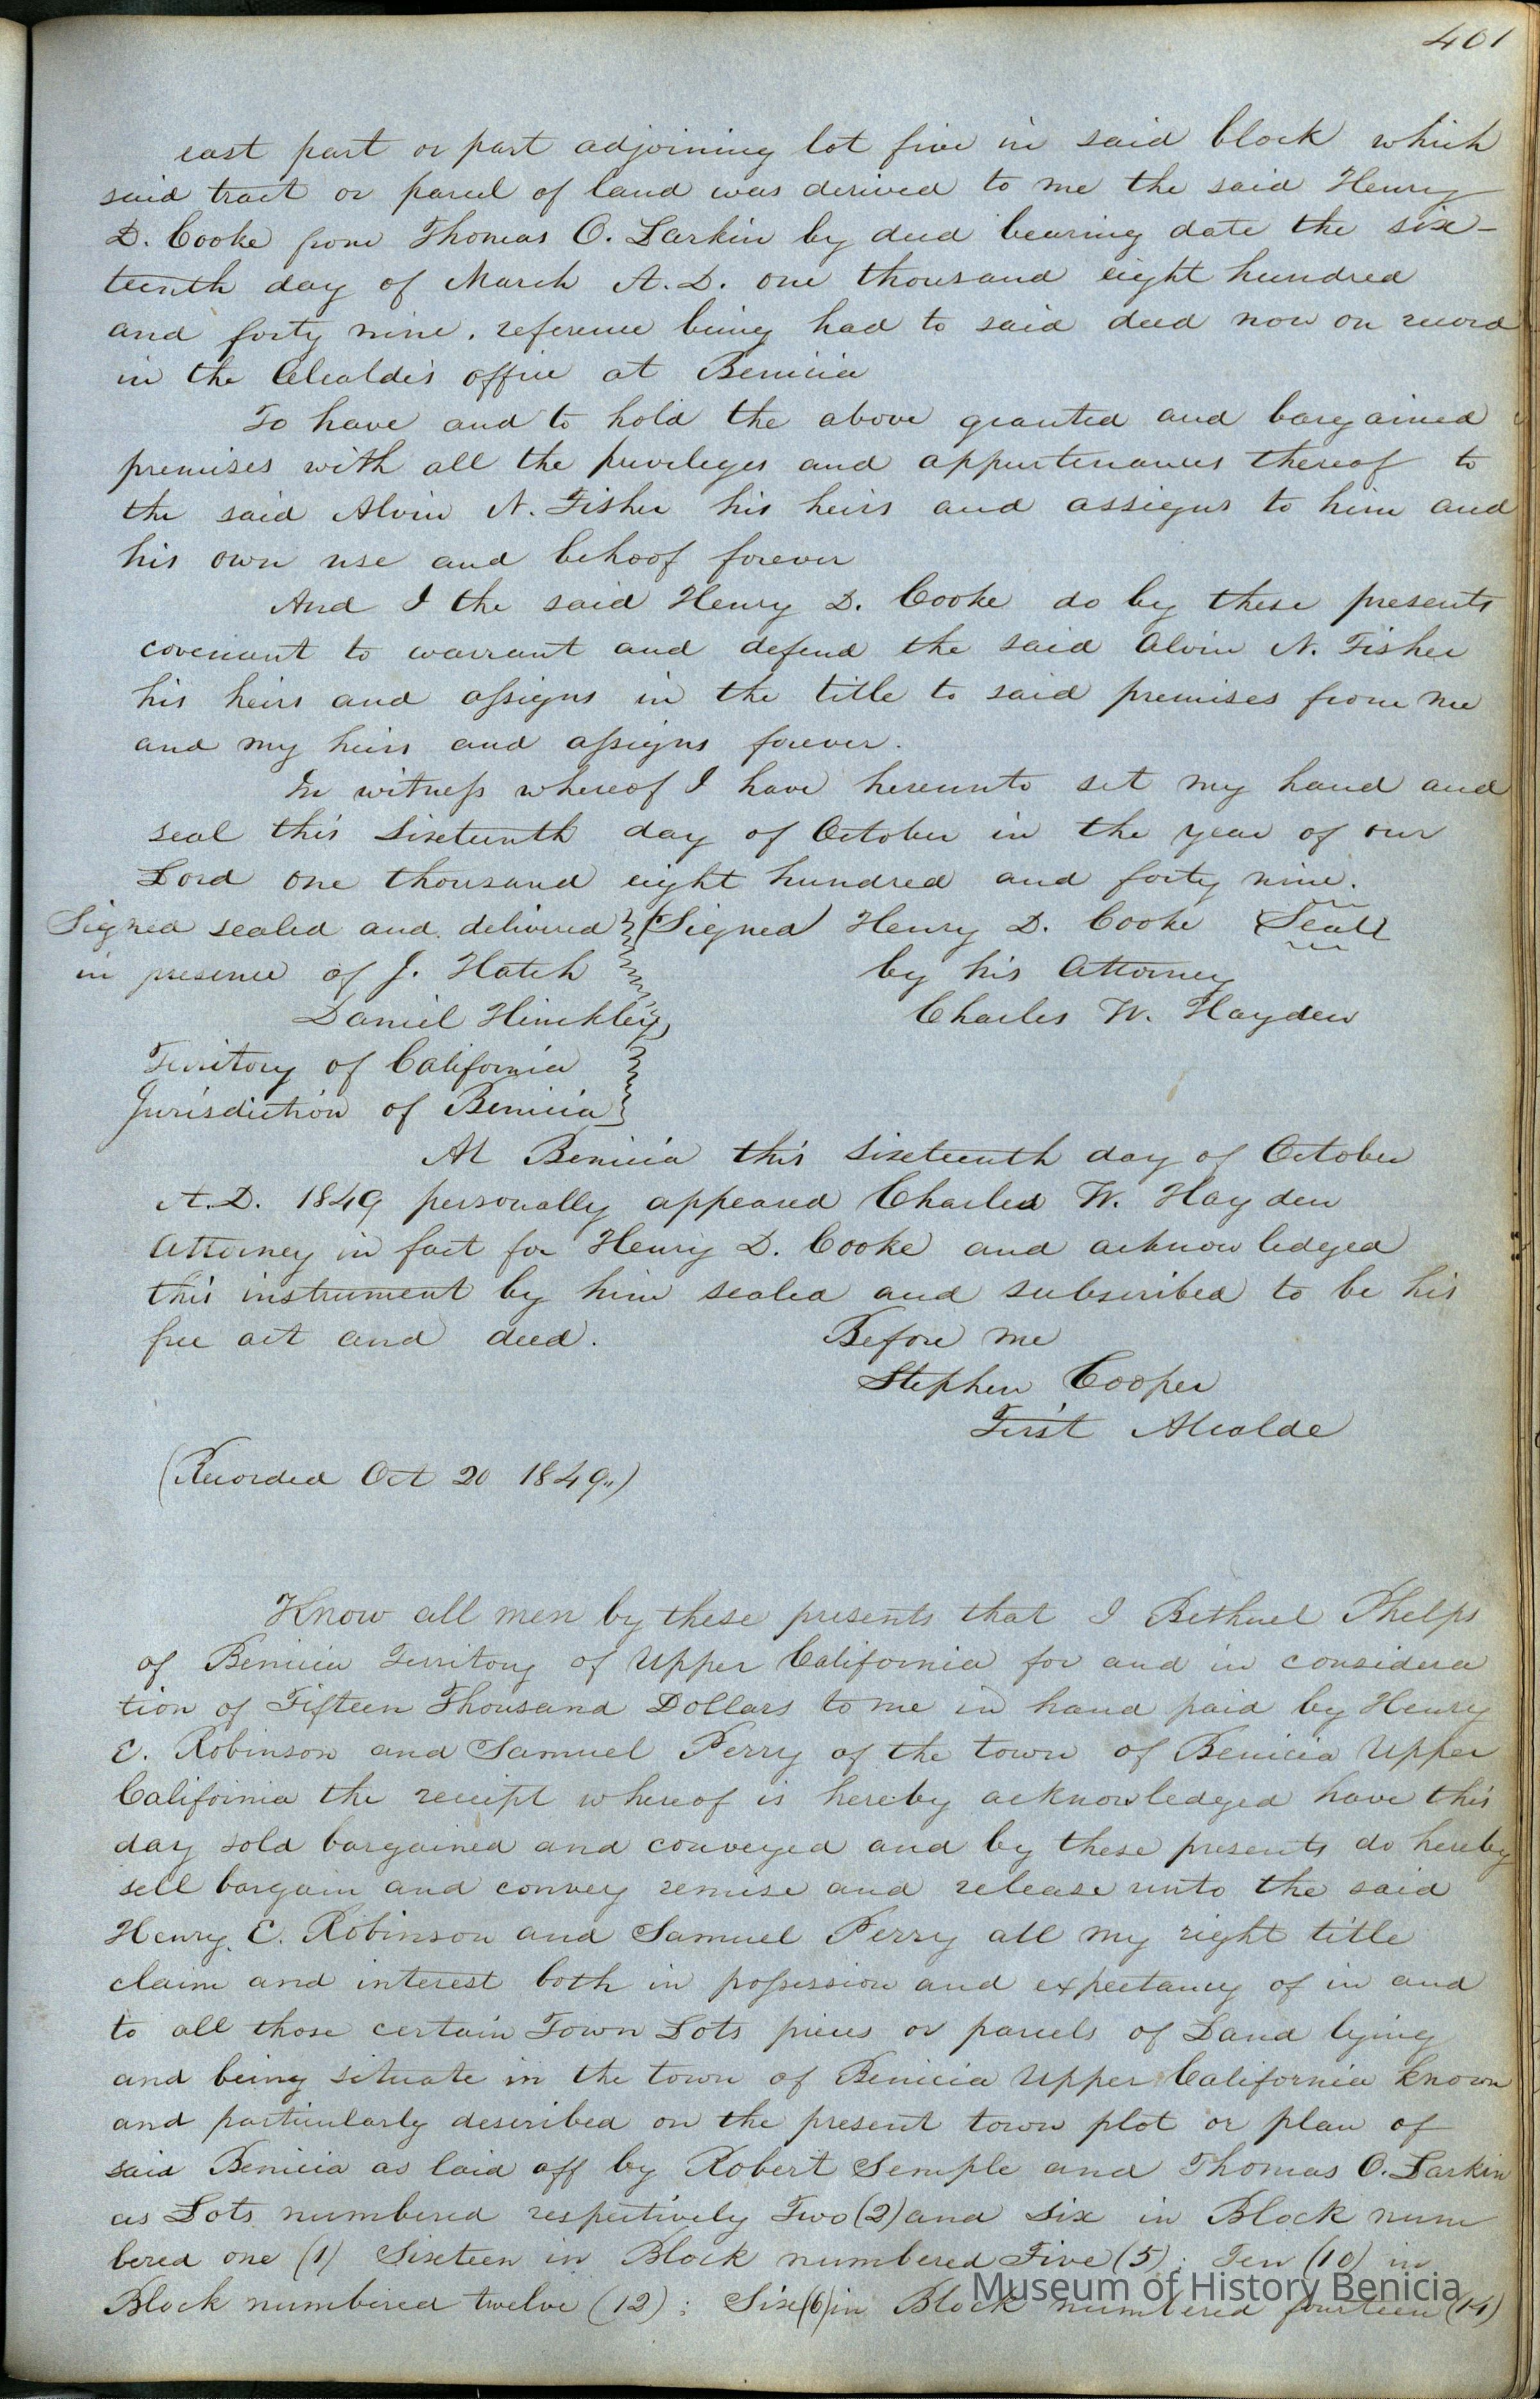 401
east part or part adjoining lot five in said block which
said tract or parcel of land was derived to me the said Henry
D. Cooke from Thomas O. Larkin by deed bearing date the six-
teenth day of March A.D. one thousand eight hundred
and forty nine, reference being had to said deed now on record
in the Alcalde's office at Benicia
To have and to hold the above granted and bargained
premises with all the privileges and appurtenances thereof to
the said Alvin N. Fisher his heirs and assigns to him and
his own use and behoof forever
And I the said Henry D. Cooke do by these presents
covenant to warrant and defend the said Alvin N. Fisher
his heirs and assigns in the title to said premises from me
and my heirs and assigns forever.
In witness whereof I have hereunto set my hand and
seal this Sixteenth day of October in the year of our
Lord one thousand eight hundred and forty nine.
Signed sealed and delivered (Signed) Henry D. Cooke Seal
in presence of J. Hatch by his Attorney
Daniel Hinckley Charles W. Hayden
Territory of California
Jurisdiction of Benicia
At Benicia this Sixteenth day of October
A.D. 1849 personally appeared Charles W. Hayden
Attorney in fact for Henry D. Cooke and acknowledged
this instrument by him sealed and subscribed to be his
free act and deed. Before me
Stephen Cooper
First Alcalde
(Recorded Oct 20 1849,,)
Know all men by these presents that I Bethuel Phelps
of Benicia Territory of Upper California for and in considera
tion of Fifteen Thousand Dollars to me in hand paid by Henry
E. Robinson and Samuel Perry of the town of Benicia Upper
California the receipt whereof is hereby acknowledged have this
day sold bargained and conveyed and by these presents do hereby
sell bargain and convey remise and release unto the said
Henry E. Robinson and Samuel Perry all my right title
claim and interest both in possession and expectancy of in and
to all those certain Town Lots pieces or parcels of Land lying
and being situate in the town of Benicia Upper California known
and particularly described on the present town plot or plan of
said Benicia as laid off by Robert Semple and Thomas O. Larkin
as Lots numbered respectively Two (2) and Six in Block num
bered one (1) Sixteen in Block numbered Five (5); Ten (10) in
Block numbered twelve (12); Six (6) in Block numbered fourteen (14)
Museum of History Benicia